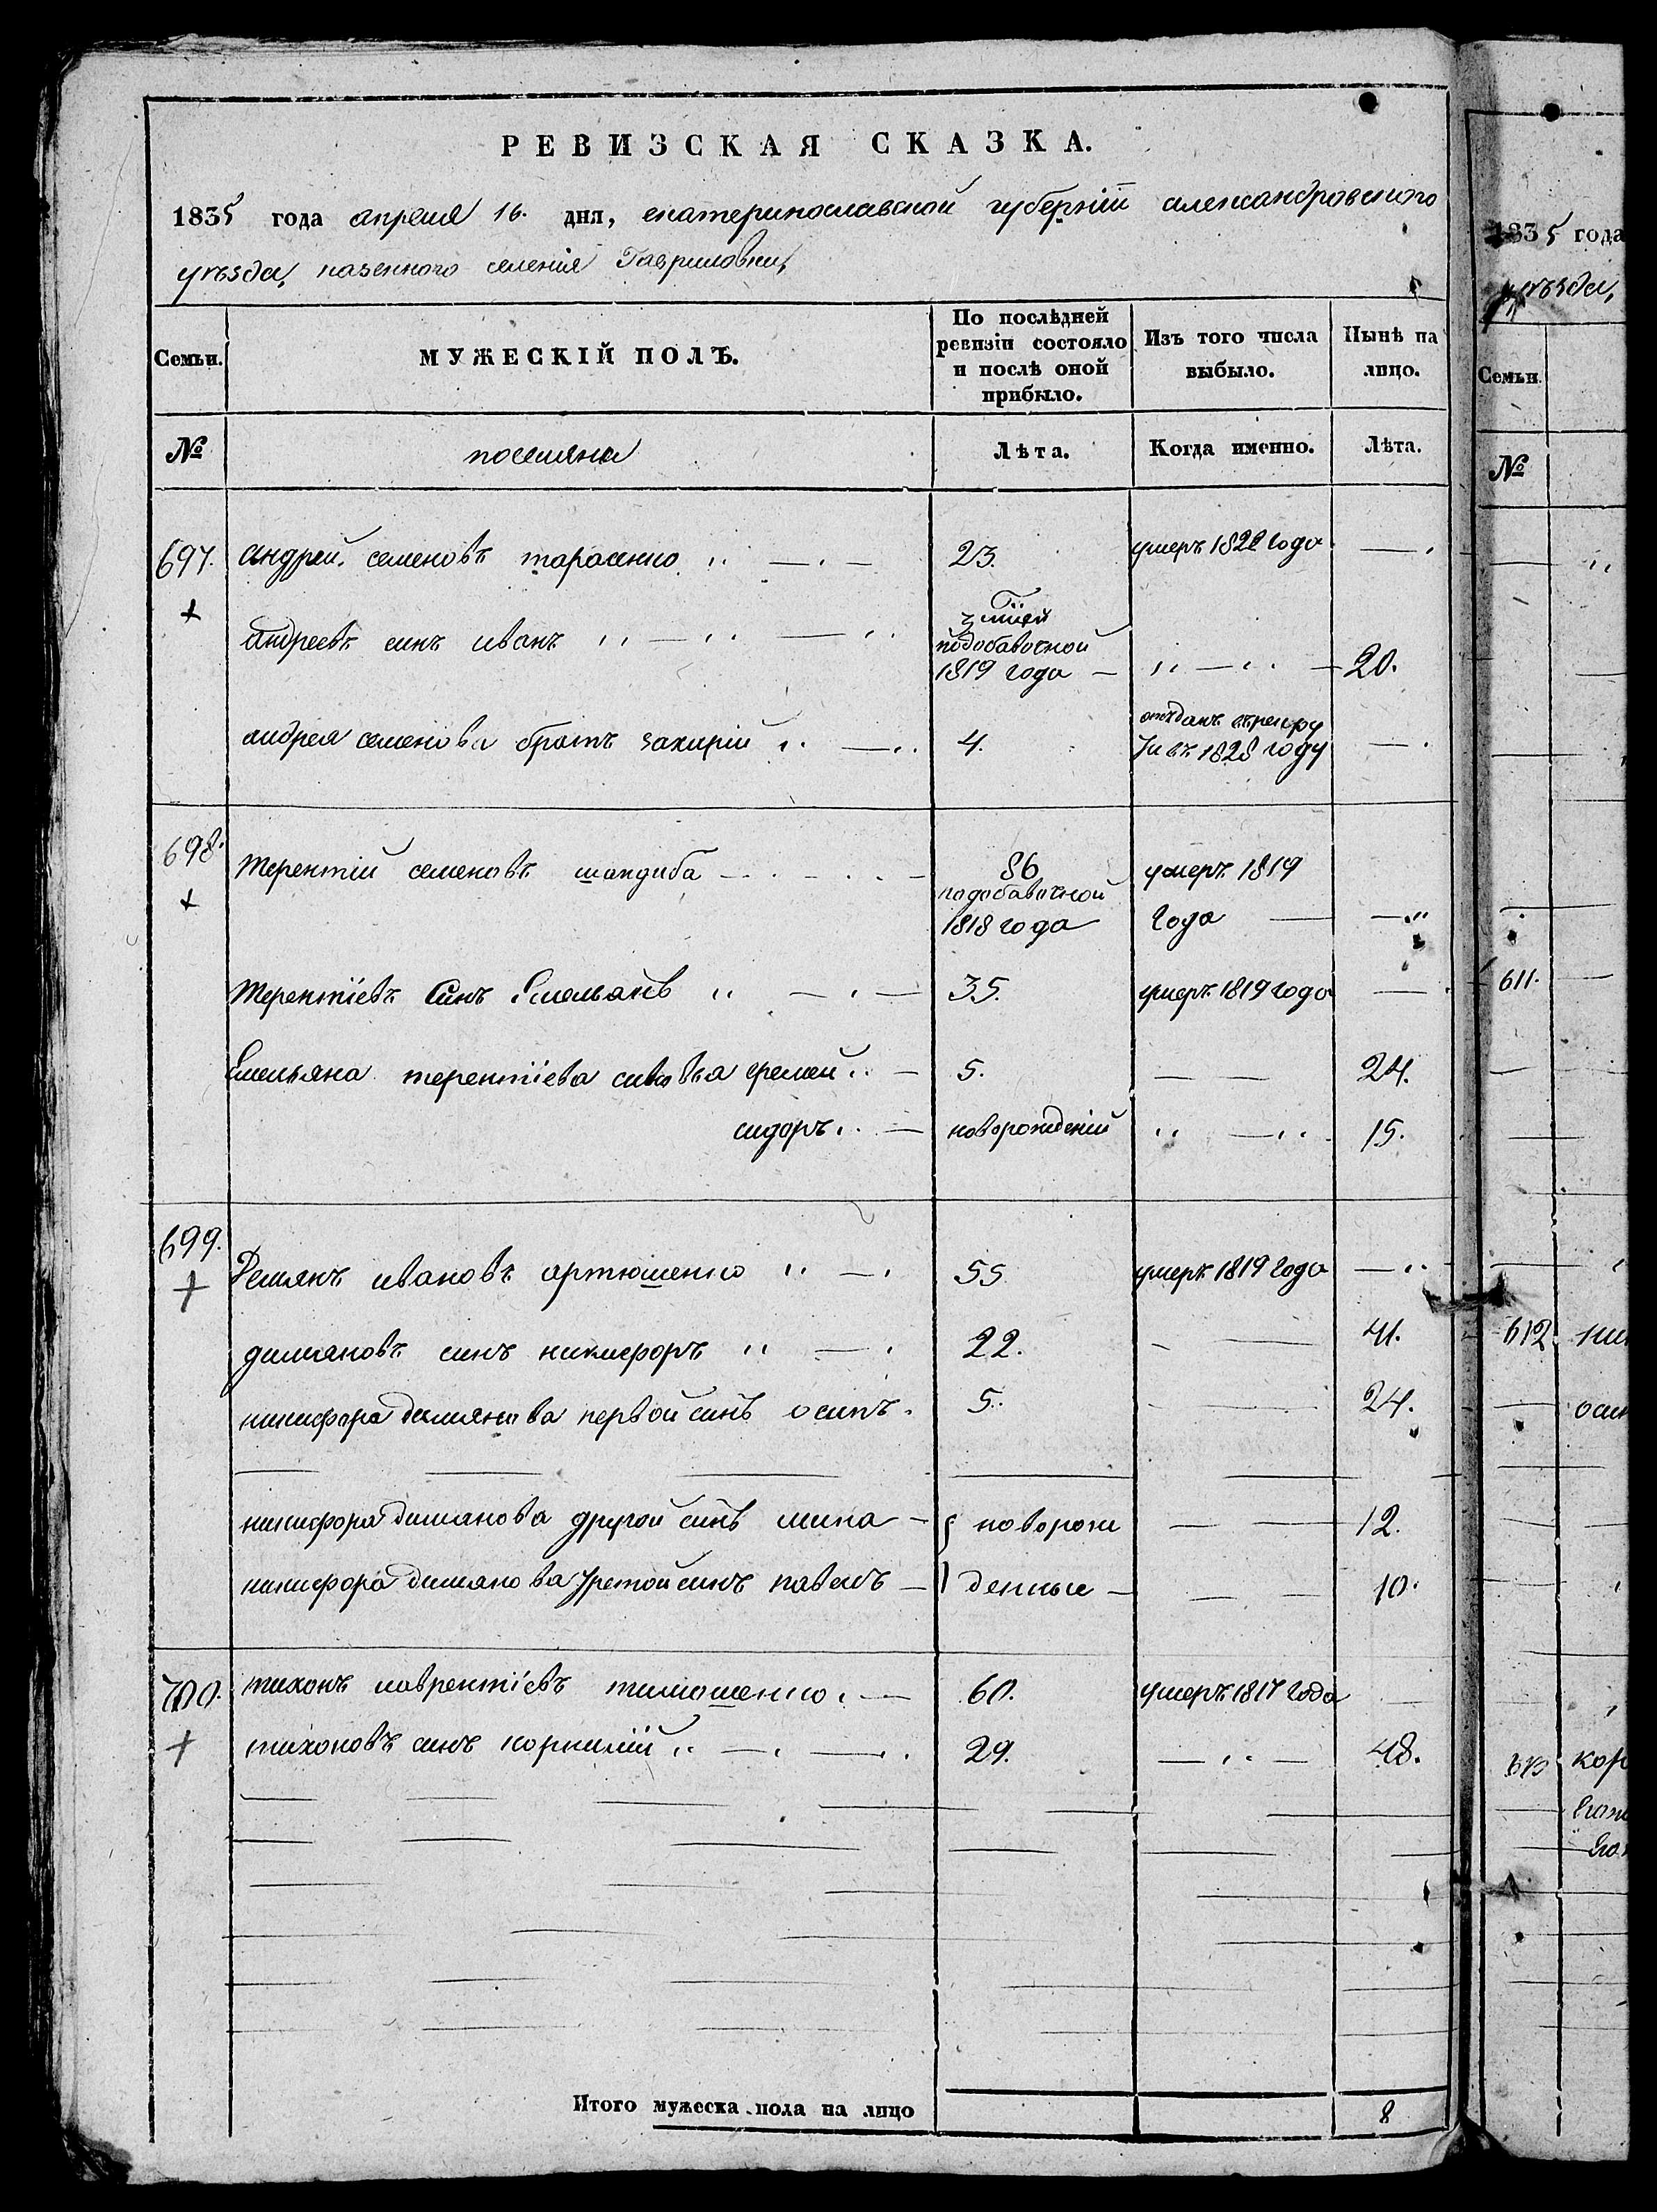 РЕВИЗСКАЯ СКАЗКА.
1835 года апреля 16. дня, екатеринославской губерніи александровского
уѣзда, казенного селенія Гавриловки,
Семьи.
МУЖЕСКІЙ ПОЛЪ.
По послѣдней ревизіи состояло и послѣ оной прибыло.
Изъ того числа выбыло.
Нынѣ на лицо.
№
поселяне
Лѣта.
Когда именно.
Лѣта.
697. андрей семеновъ тарасенко 23. умеръ 1822 года
андреевъ синъ иванъ
подобавочной
1819 года 20.
андрея семенова братъ захарій 4. отъданъ врекру
ти въ 1828 году
698. терентій семеновъ шандиба 86 умеръ 1819
подобавочной
1818 года года
терентіевъ синъ Емельянъ 35. умеръ 1819 года
Емельяна терентіева синовья еремей 5. 24.
сидоръ новорожденій 15.
699. Демянъ ивановъ артюшенко 55 умеръ 1819 года
димяновъ синъ никифоръ 22. 41.
никифора демянова первой синъ осипъ 5. 24.
никифора димянова другой синъ мина новорож 12.
никифора димянова третой синъ павелъ денные 10.
700. тихонъ лаврентіевъ тимошенко 60. умеръ 1817 года
тихоновъ синъ корнилій 29. 48.
Итого мужеска пола на лицо 8
1835 года
уѣзда,
Семьи.
№
611.
612
613
кор